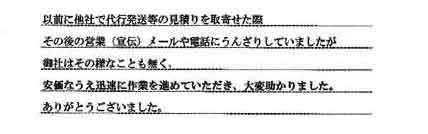 以前に他社で代行発送等の見積りを取寄せた際
その後の営業（宣伝）メールや電話にうんざりしていましたが
御社はその様なことも無く、
安価なうえ迅速に作業を進めていただき、大変助かりました。
ありがとうございました。